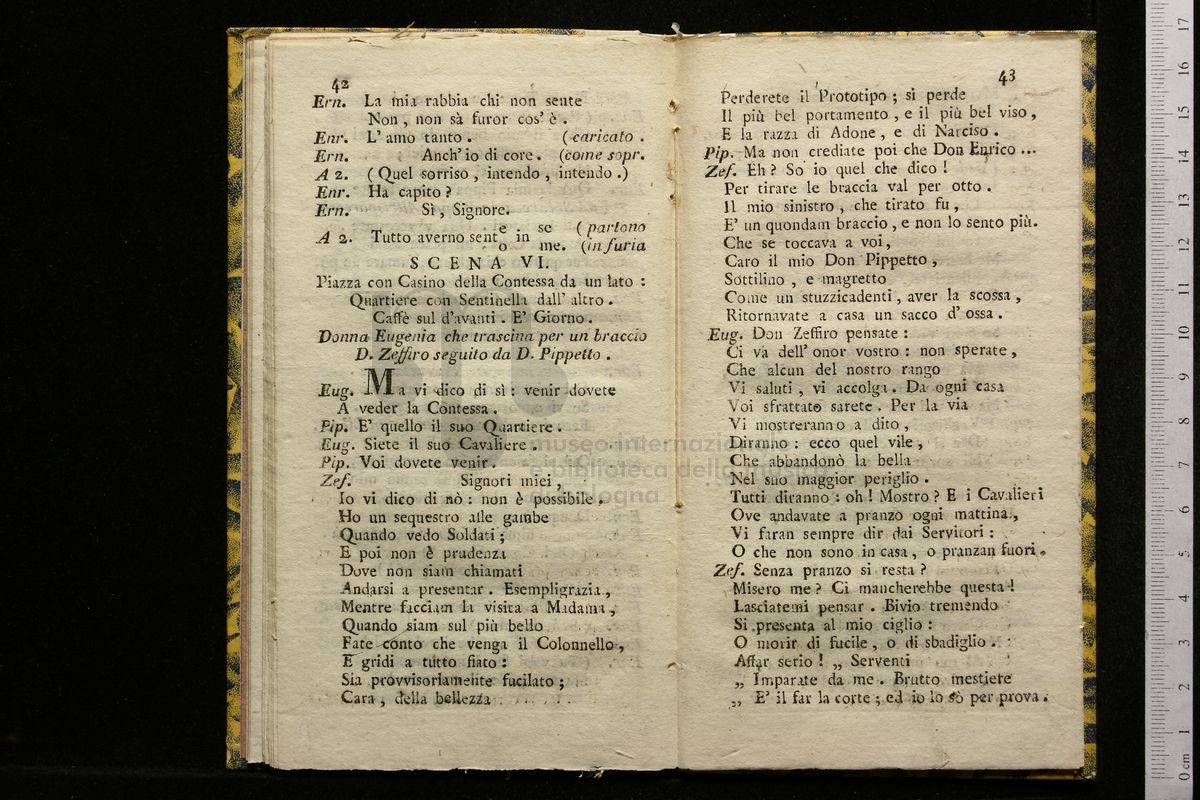 42
Ern. La mia rabbia chi non sente
Non, non sà furor cos' è.
Enr. L' amo tanto. (caricato.
Ern. Anch' io di core. (come sopr.
A 2. (Quel sorriso, intendo, intendo.)
Enr. Ha capito?
Ern. Sì, Signore.
A 2. Tutto averno sent e/o in se/me. (partono
(in furia
SCENA VI.
Piazza con Casino della Contessa da un lato:
Quartiere con Sentinella dall' altro.
Caffè sul d'avanti. E' Giorno.
Donna Eugenia che trascina per un braccio
D. Zeffiro seguito da D. Pippetto.
Eug. Ma vi dico di sì: venir dovete
A veder la Contessa.
Pip. E' quello il suo Quartiere.
Eug. Siete il suo Cavaliere.
Pip. Voi dovete venir.
Zef. Signori miei,
Io vi dico di nò: non è possibile.
Ho un sequestro alle gambe
Quando vedo Soldati;
E poi non è prudenza
Dove non siam chiamati
Andarsi a presentar. Esempligrazia,
Mentre facciam la visita a Madama,
Quando siam sul più bello
Fate conto che venga il Colonnello,
E gridi a tutto fiato:
Sia provvisoriamente fucilato;
Cara, della bellezza
43
Perderete il Prototipo; si perde
Il più bel portamento, e il più bel viso,
E la razza di Adone, e di Narciso.
Pip. Ma non crediate poi che Don Enrico ...
Zef. Eh? So io quel che dico!
Per tirare le braccia val per otto.
Il mio sinistro, che tirato fu,
E' un quondam braccio, e non lo sento più.
Che se toccava a voi,
Caro il mio Don Pippetto,
Sottilino, e magretto
Come un stuzzicadenti, aver la scossa,
Ritornavate a casa un sacco d' ossa.
Eug. Don Zeffiro pensate:
Ci va dell' onor vostro: non sperate,
Che alcun del nostro rango
Vi saluti, vi accolga. Da ogni casa
Voi sfrattato sarete. Per la via
Vi mostreranno a dito,
Diranno: ecco quel vile,
Che abbandonò la bella
Nel suo maggior periglio.
Tutti diranno: oh! Mostro? E i Cavalieri
Ove andavate a pranzo ogni mattina,
Vi faran sempre dir dai Servitori:
O che non sono in casa, o pranzan fuori.
Zef. Senza pranzo si resta?
Misero me? Ci mancherebbe questa!
Lasciatemi pensar. Bivio tremendo
Si presenta al mio ciglio:
O morir di fucile, o di sbadiglio.
Affar serio! „ Serventi
„ Imparate da me. Brutto mestiere
„ E' il far la corte; ed io lo sò per prova.
museo internazionale
e biblioteca della musica
bologna
0 cm 1 2 3 4 5 6 7 8 9 10 11 12 13 14 15 16 17